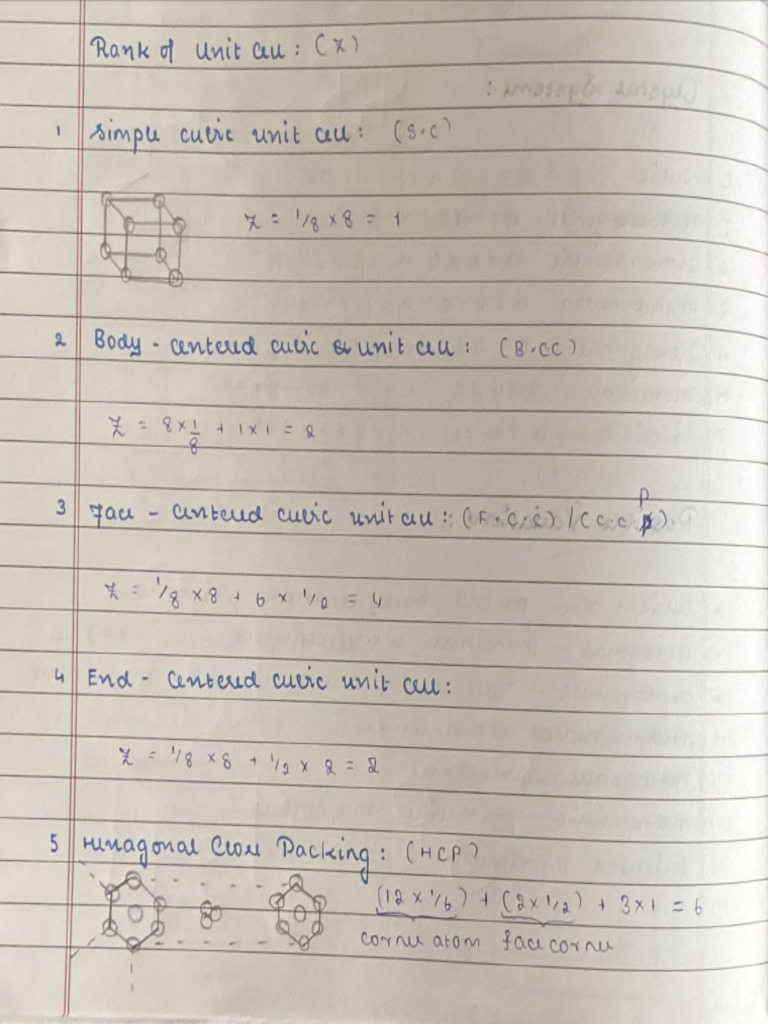 Rank of Unit cell : (Z)
1 Simple cubic unit cell : (S.C)
Z = 1/8 × 8 = 1
2 Body - centered cubic unit cell : (B.CC)
Z = 8 × 1/8 + 1 × 1 = 2
3 Face - centered cubic unit cell :: (F.C.C) / (C.C.P)
Z = 1/8 × 8 + 6 × 1/2 = 4
4 End - centered cubic unit cell :
Z = 1/8 × 8 + 1/2 × 2 = 2
5 Hexagonal Close Packing : (HCP)
(12 × 1/6) + (2 × 1/2) + 3 × 1 = 6
corner atom face corner